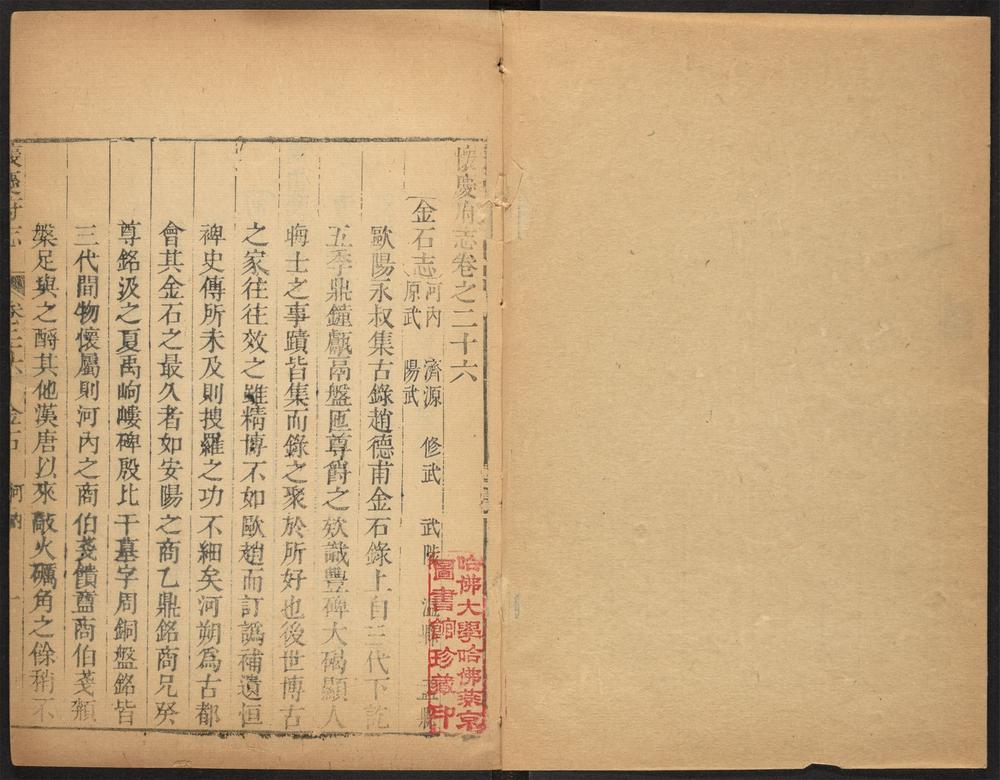 懷慶府志卷之二十六
金石志 河內 濟源 修武 武陟 溫縣 孟縣
原武 陽武
歐陽永叔集古錄趙德甫金石錄上自三代下訖
五季鼎鐘甗鬲盤匜尊爵之欵識豐碑大碣顯人
晦士之事蹟皆集而錄之聚於所好也後世博古
之家往往效之雖精博不如歐趙而訂譌補遺恒
裨史傳所未及則搜羅之功不細矣河朔爲古都
會其金石之最久者如安陽之商乙鼎銘商兄癸
尊銘汲之夏禹岣嶁碑殷比干墓字周銅盤銘皆
三代間物懷屬則河內之商伯戔饙盦商伯戔頮
槃足與之酹其他漢唐以來敲火礪角之餘稍不
慶府志 卷二十六 金石 河內 一
哈佛大學哈佛燕京
圖書館珍藏印